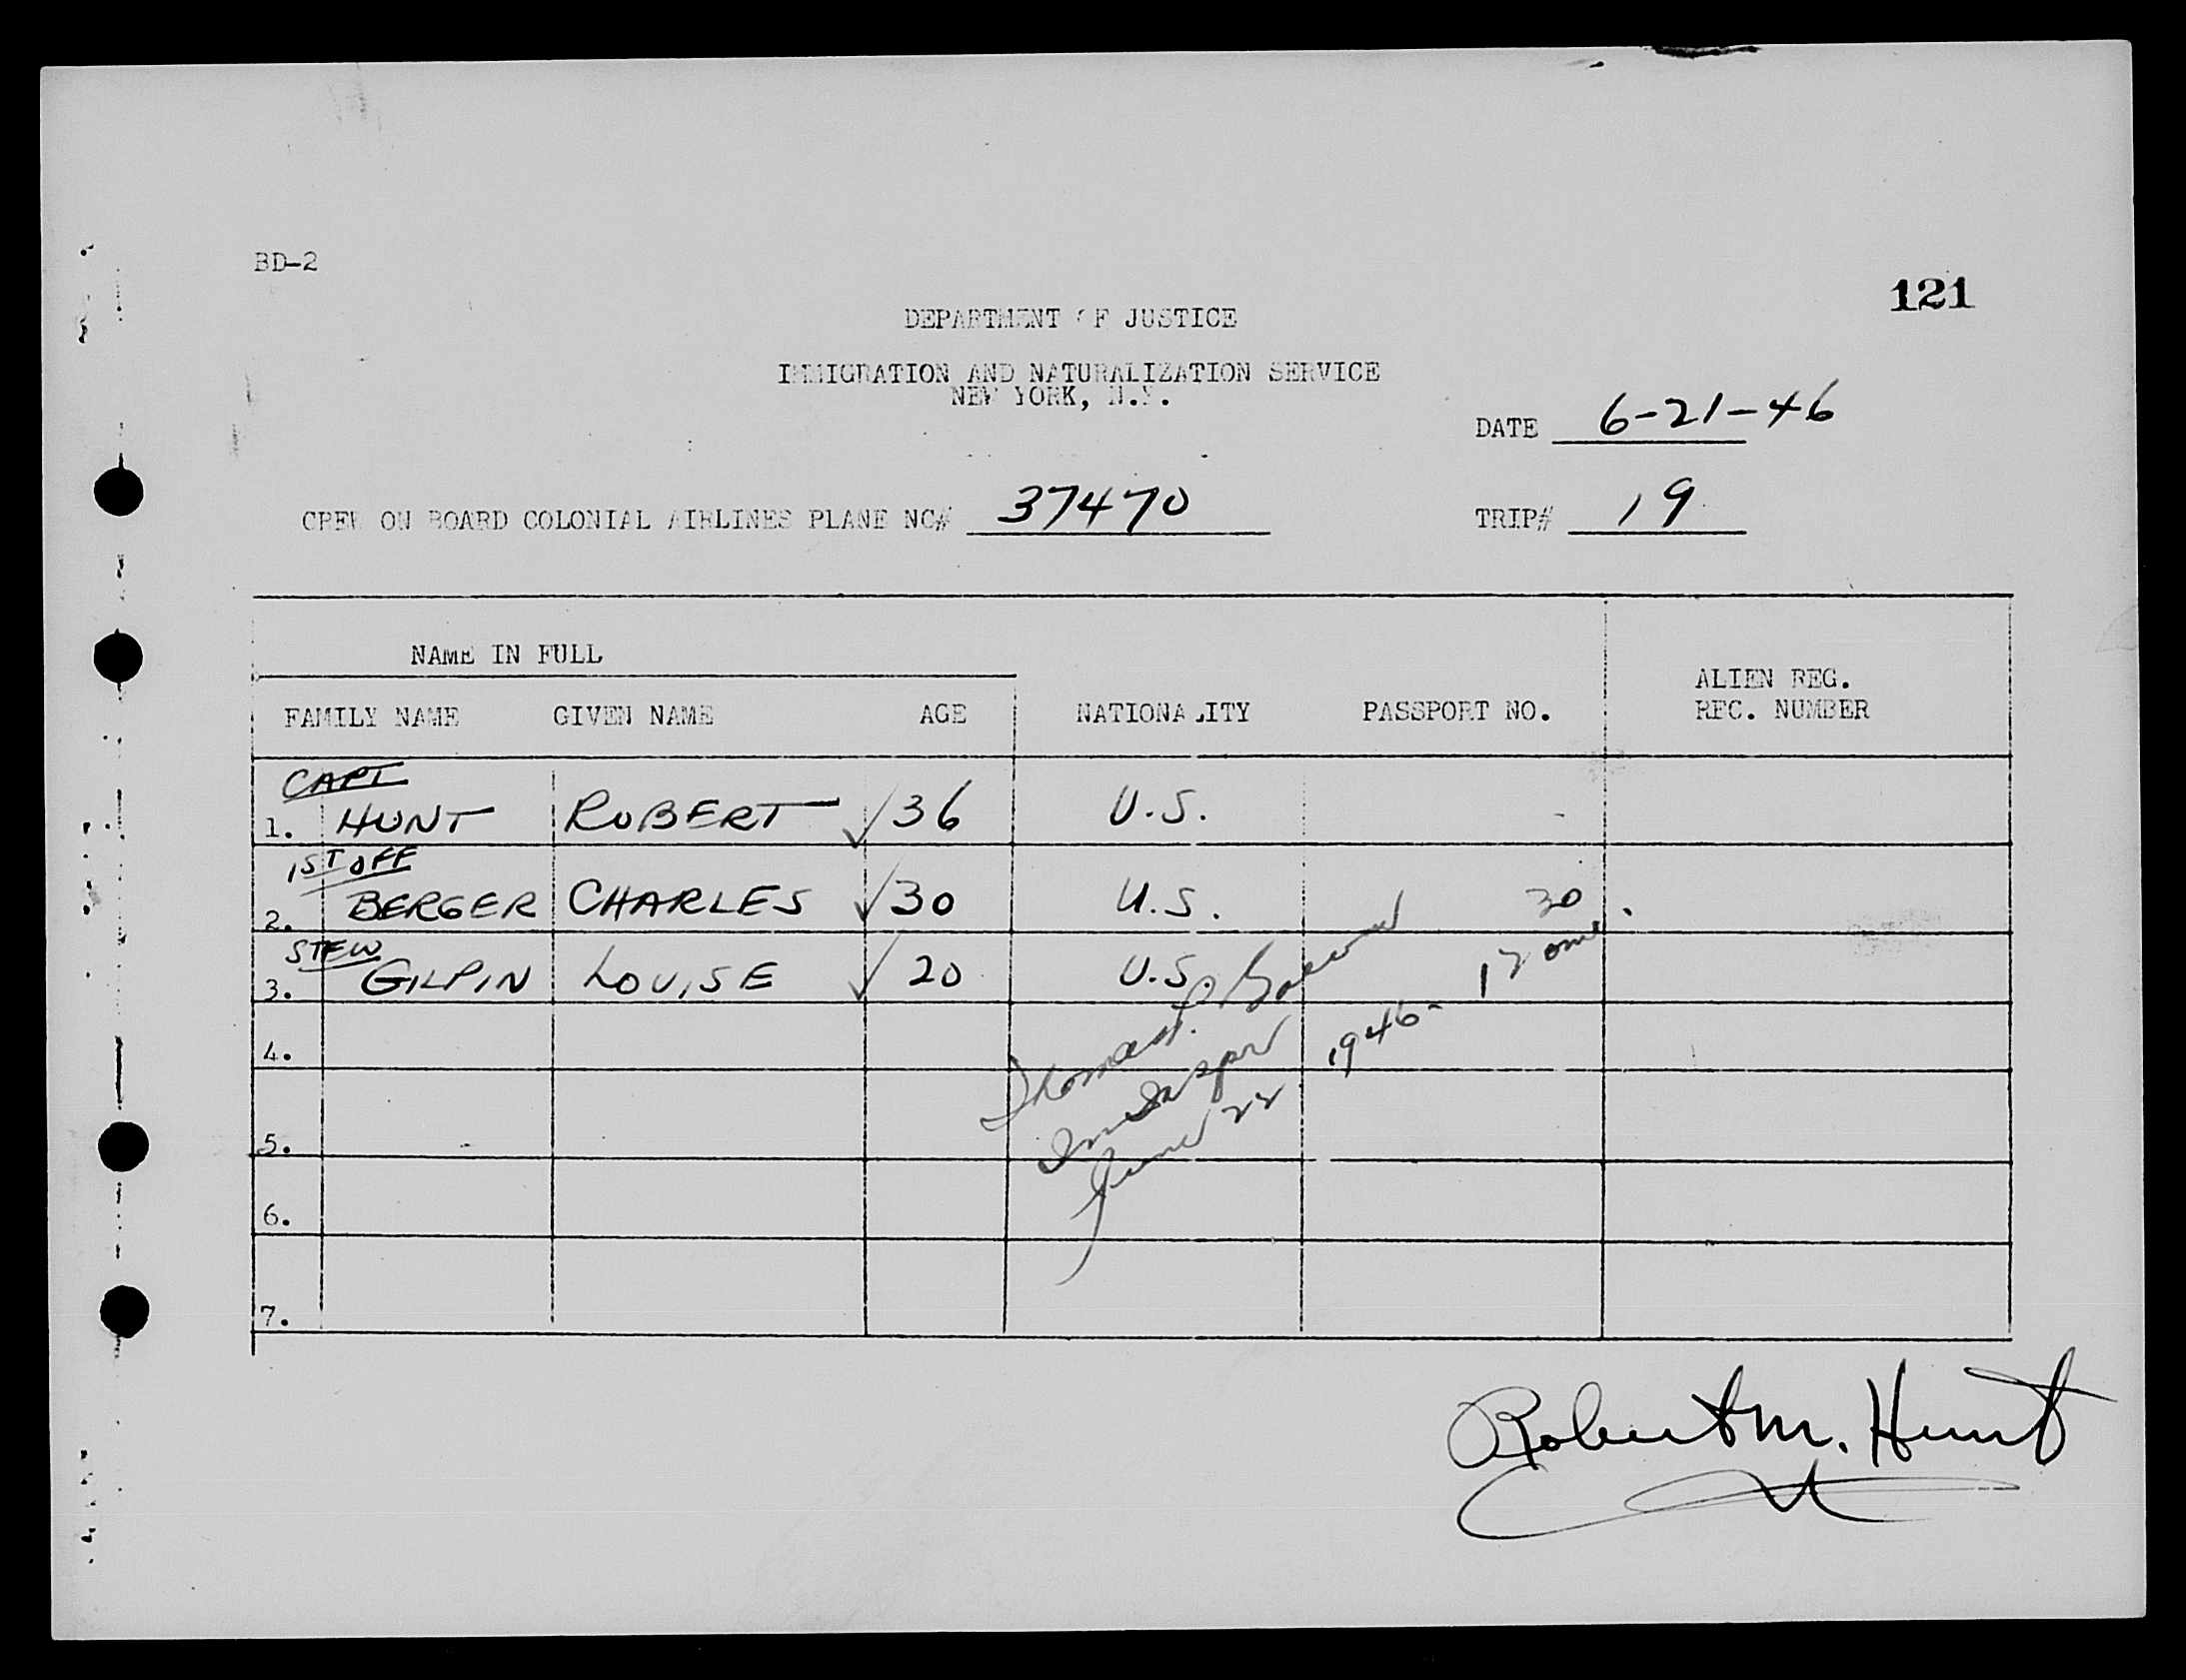 BD-2
121
DEPARTMENT OF JUSTICE
IMMIGRATION AND NATURALIZATION SERVICE
NEW YORK, N.Y.
DATE 6-21-46
CREW ON BOARD COLONIAL AIRLINES PLANE NC# 37470 TRIP# 19
NAME IN FULL
ALIEN REG.
FAMILY NAME GIVEN NAME AGE NATIONALITY PASSPORT NO. REC. NUMBER
CAPT
1. HUNT ROBERT √ 36 U.S.
1ST OFF
2. BERGER CHARLES √ 30 U.S.
STEW
3. GILPIN LOUISE √ 20 U.S.
4.
5.
6.
7.
Thomas P.
Imm Inspr
June 22 1946- 12 30
Robert M. Hunt